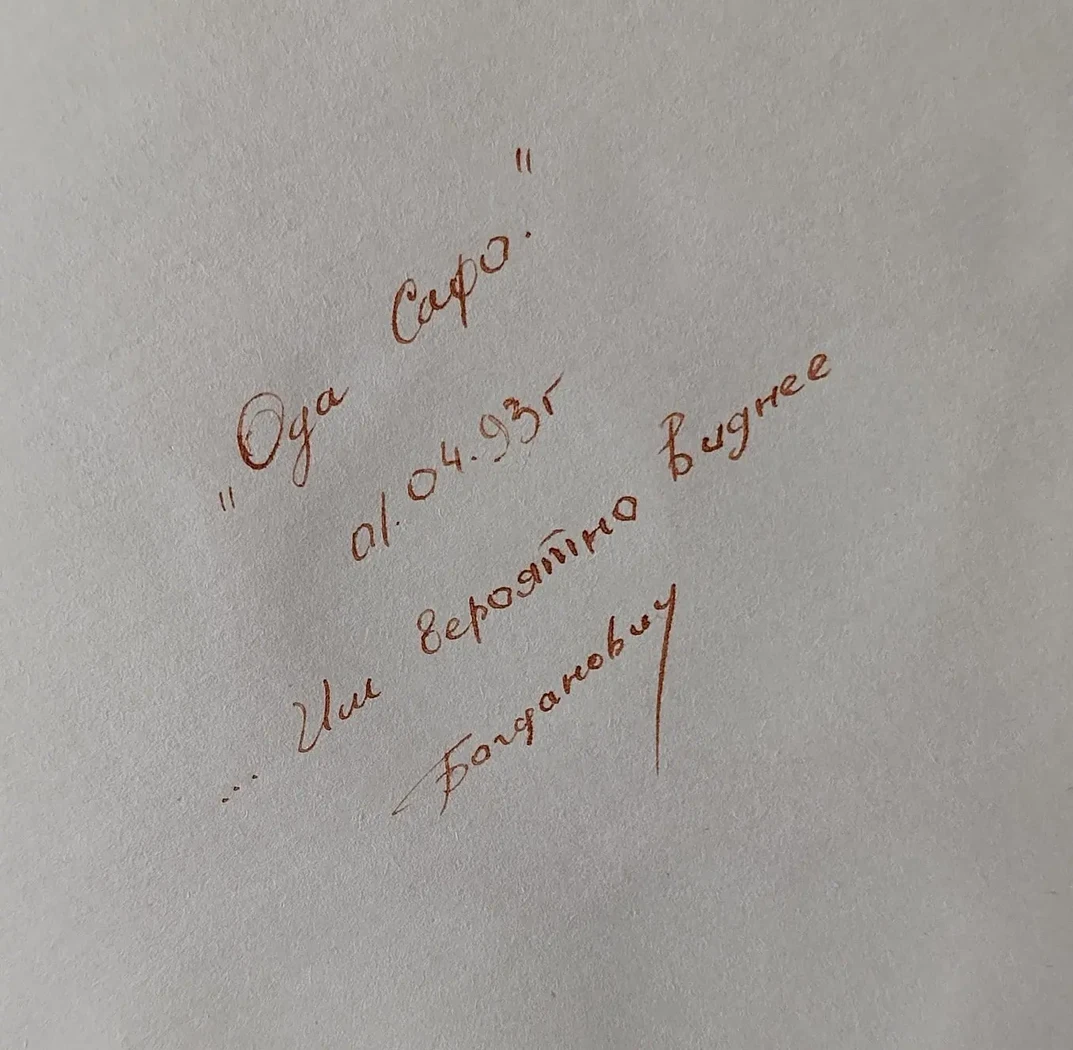 "Ода Сафо."
01.04.93г
... Им вероятно виднее
Богданович